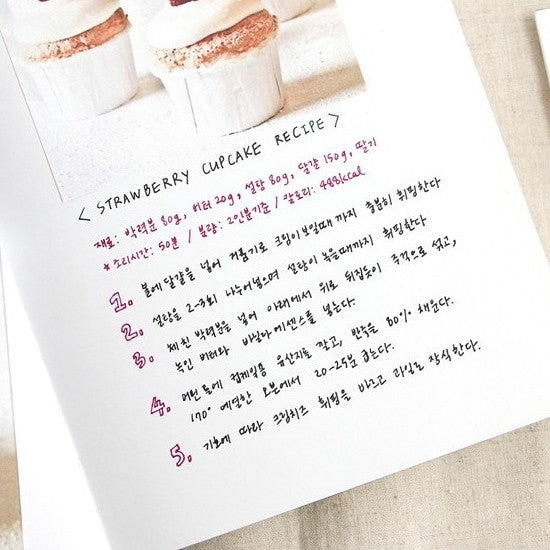 < STRAWBERRY CUPCAKE RECIPE >
재료: 박력분 80g, 버터 20g, 설탕 80g, 달걀 150g, 딸기
* 소리시간: 50분 / 분량: 2인분기준 / 칼로리: 488kcal
1. 볼에 달걀을 넣어 거품기로 크림이 보일때까지 충분히 휘핑한다
2. 설탕을 2-3회 나누어넣으며 설탕이 녹을때까지 휘핑한다
3. 체친 박력분을 넣어 아래에서 위로 뒤집듯이 주걱으로 섞고,
녹인 버터와 바닐라에센스를 넣는다.
4. 머핀틀에 컵케익용 유산지를 깔고, 반죽을 80% 채운다.
170° 예열한 오븐에서 20-25분 굽는다.
5. 기호에 따라 크림치즈 휘핑을 바르고 과일로 장식한다.